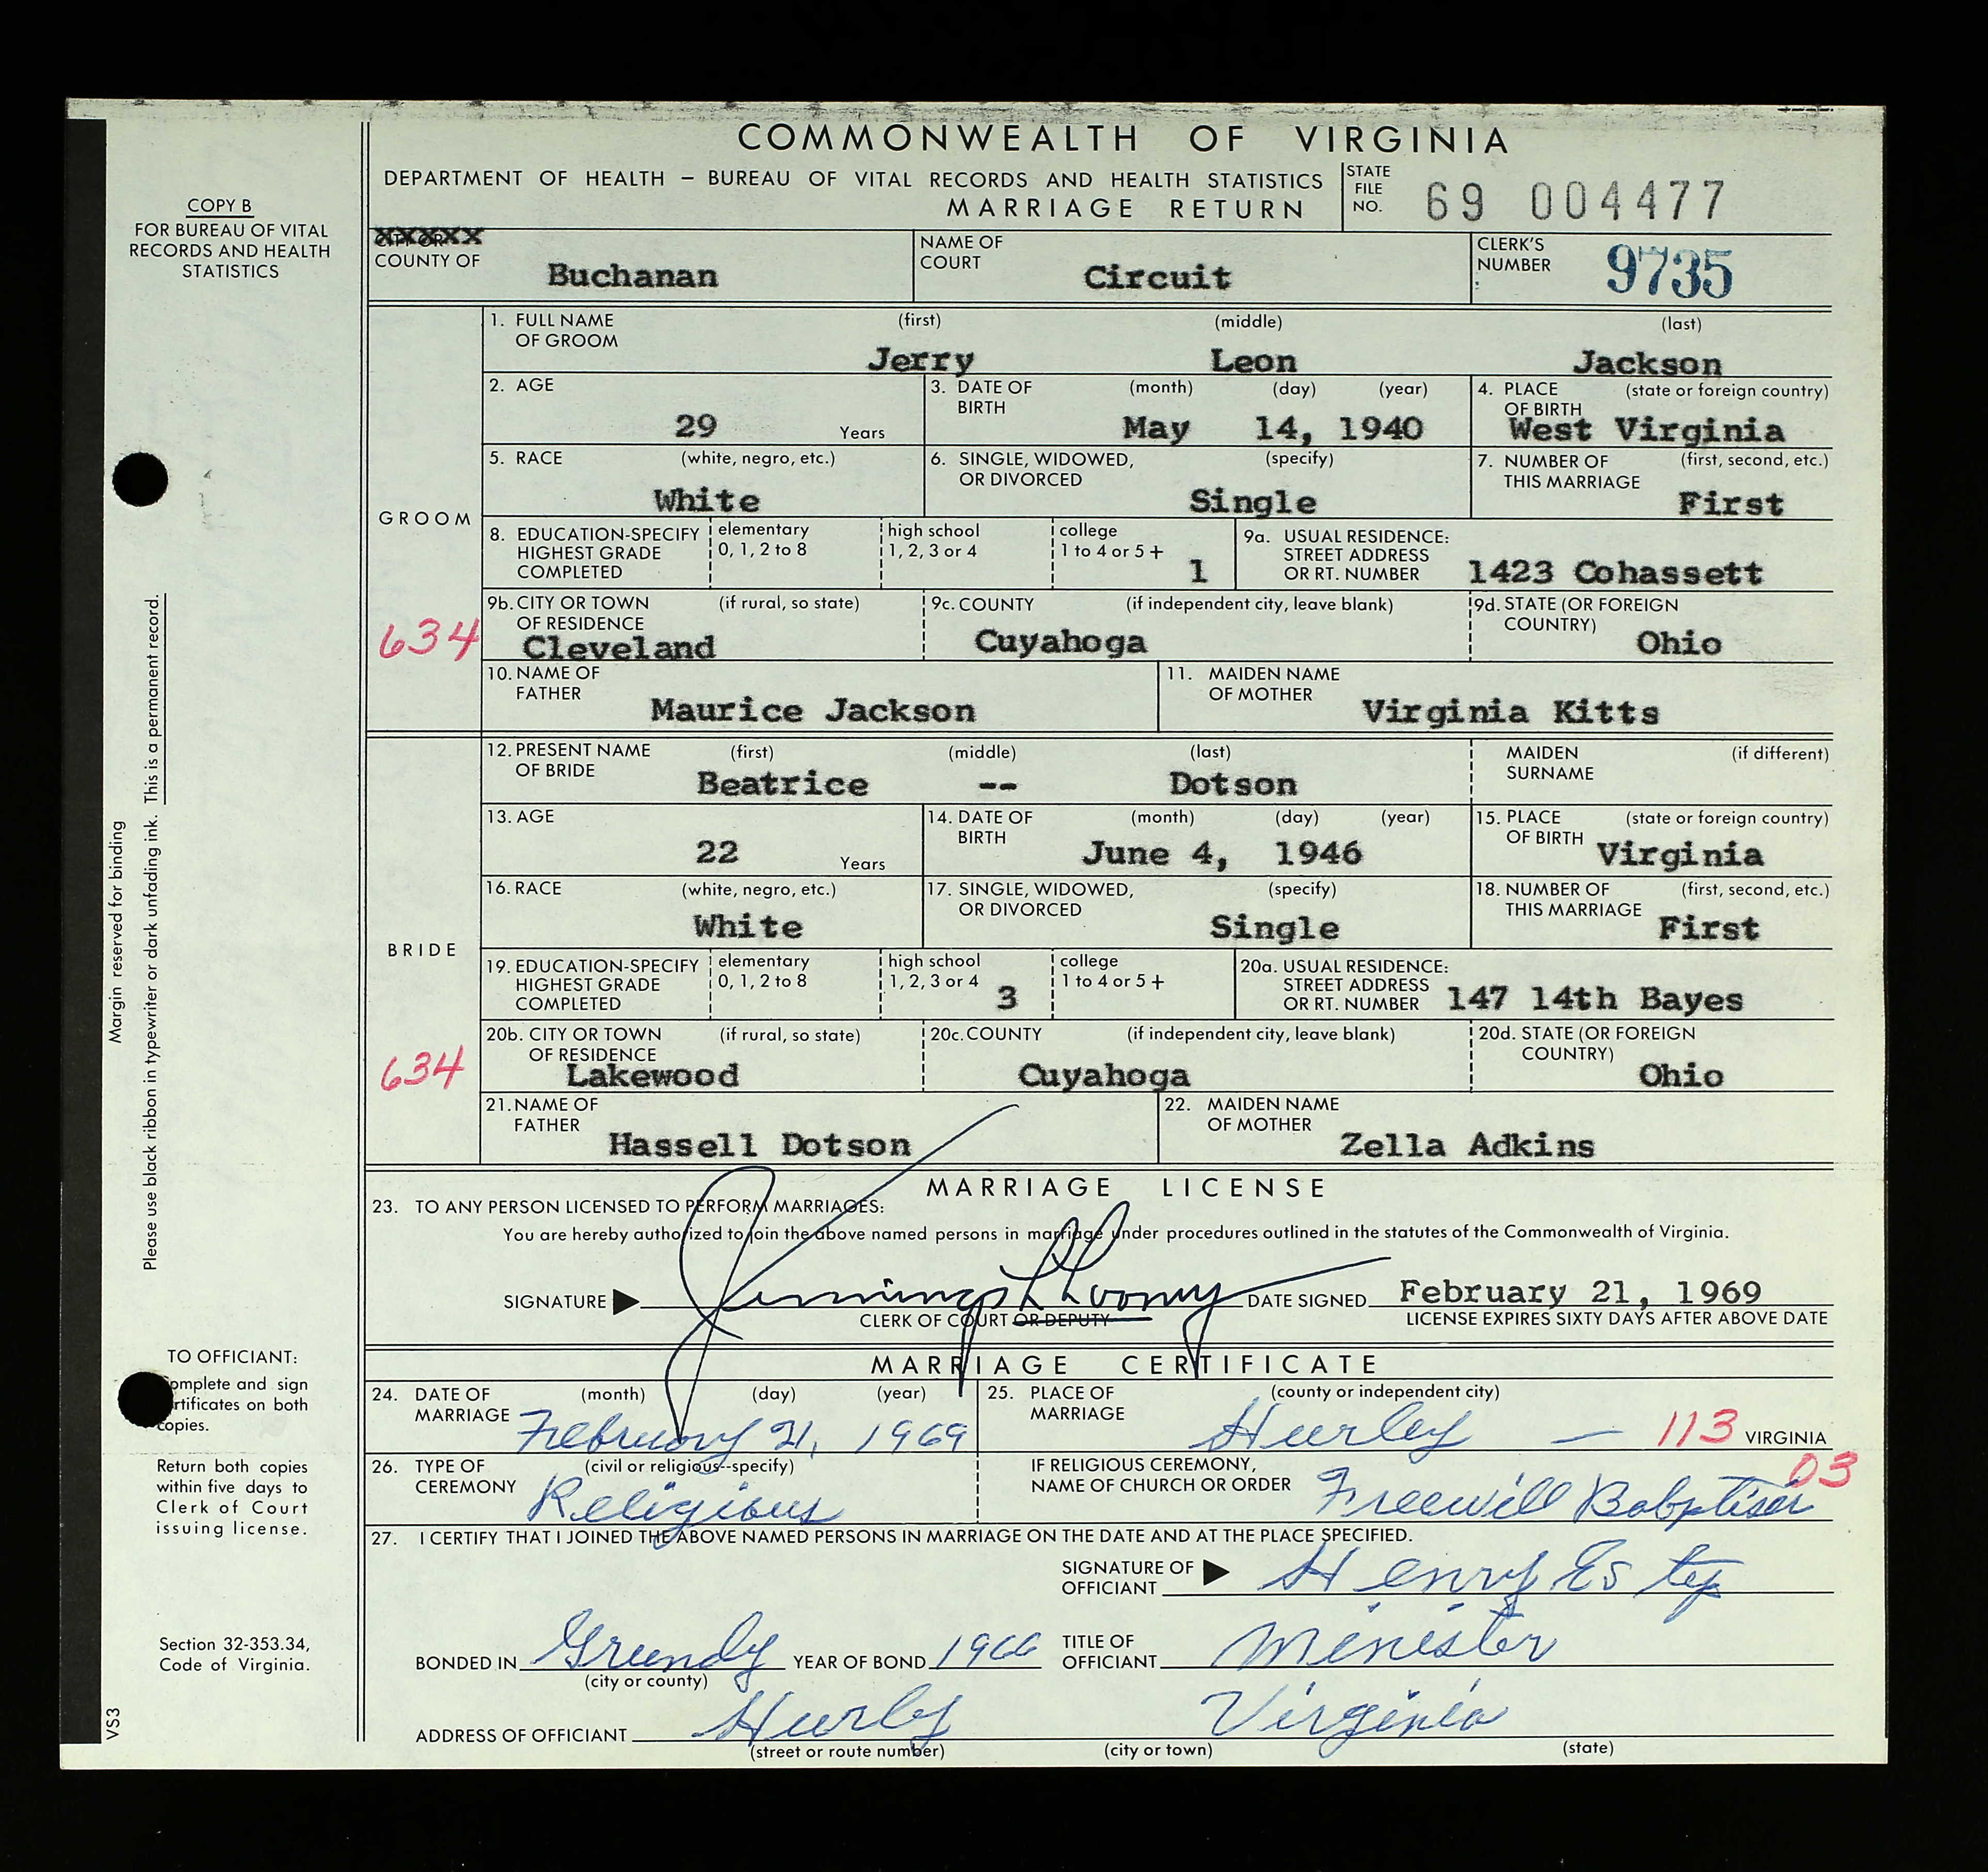 COMMONWEALTH OF VIRGINIA
DEPARTMENT OF HEALTH – BUREAU OF VITAL RECORDS AND HEALTH STATISTICS
MARRIAGE RETURN
STATE FILE NO. 69 004477
COPY B
FOR BUREAU OF VITAL
RECORDS AND HEALTH
STATISTICS
CITY OR
COUNTY OF Buchanan
NAME OF COURT Circuit
CLERK'S NUMBER 9735
GROOM
634
1. FULL NAME OF GROOM (first) (middle) (last)
Jerry Leon Jackson
2. AGE 29 Years
3. DATE OF BIRTH (month) (day) (year)
May 14, 1940
4. PLACE OF BIRTH (state or foreign country)
West Virginia
5. RACE (white, negro, etc.)
White
6. SINGLE, WIDOWED, OR DIVORCED (specify)
Single
7. NUMBER OF THIS MARRIAGE (first, second, etc.)
First
8. EDUCATION-SPECIFY HIGHEST GRADE COMPLETED
elementary 0, 1, 2 to 8
high school 1, 2, 3 or 4
college 1 to 4 or 5+ 1
9a. USUAL RESIDENCE: STREET ADDRESS OR RT. NUMBER 1423 Cohassett
9b. CITY OR TOWN OF RESIDENCE (if rural, so state)
Cleveland
9c. COUNTY (if independent city, leave blank)
Cuyahoga
9d. STATE (OR FOREIGN COUNTRY)
Ohio
10. NAME OF FATHER
Maurice Jackson
11. MAIDEN NAME OF MOTHER
Virginia Kitts
BRIDE
634
12. PRESENT NAME OF BRIDE (first) (middle) (last)
Beatrice -- Dotson
MAIDEN SURNAME (if different)
13. AGE 22 Years
14. DATE OF BIRTH (month) (day) (year)
June 4, 1946
15. PLACE OF BIRTH (state or foreign country)
Virginia
16. RACE (white, negro, etc.)
White
17. SINGLE, WIDOWED, OR DIVORCED (specify)
Single
18. NUMBER OF THIS MARRIAGE (first, second, etc.)
First
19. EDUCATION-SPECIFY HIGHEST GRADE COMPLETED
elementary 0, 1, 2 to 8
high school 1, 2, 3 or 4 3
college 1 to 4 or 5+
20a. USUAL RESIDENCE: STREET ADDRESS OR RT. NUMBER 147 14th Bayes
20b. CITY OR TOWN OF RESIDENCE (if rural, so state)
Lakewood
20c. COUNTY (if independent city, leave blank)
Cuyahoga
20d. STATE (OR FOREIGN COUNTRY)
Ohio
21. NAME OF FATHER
Hassell Dotson
22. MAIDEN NAME OF MOTHER
Zella Adkins
MARRIAGE LICENSE
23. TO ANY PERSON LICENSED TO PERFORM MARRIAGES:
You are hereby authorized to join the above named persons in marriage under procedures outlined in the statutes of the Commonwealth of Virginia.
SIGNATURE Jennings L Looney DATE SIGNED February 21, 1969
CLERK OF COURT OR DEPUTY
LICENSE EXPIRES SIXTY DAYS AFTER ABOVE DATE
MARRIAGE CERTIFICATE
24. DATE OF MARRIAGE (month) (day) (year)
February 21, 1969
25. PLACE OF MARRIAGE (county or independent city)
Hurley — 113 VIRGINIA
03
26. TYPE OF CEREMONY (civil or religious--specify)
Religious
IF RELIGIOUS CEREMONY, NAME OF CHURCH OR ORDER Freewill
27. I CERTIFY THAT I JOINED THE ABOVE NAMED PERSONS IN MARRIAGE ON THE DATE AND AT THE PLACE SPECIFIED.
SIGNATURE OF OFFICIANT Henry Estep
BONDED IN Grundy YEAR OF BOND 1966
(city or county)
TITLE OF OFFICIANT Minister
ADDRESS OF OFFICIANT Hurly Virginia
(street or route number) (city or town) (state)
Margin reserved for binding
Please use black ribbon in typewriter or dark unfading ink. This is a permanent record.
TO OFFICIANT:
omplete and sign
rtificates on both
copies.
Return both copies
within five days to
Clerk of Court
issuing license.
Section 32-353.34,
Code of Virginia.
VS3